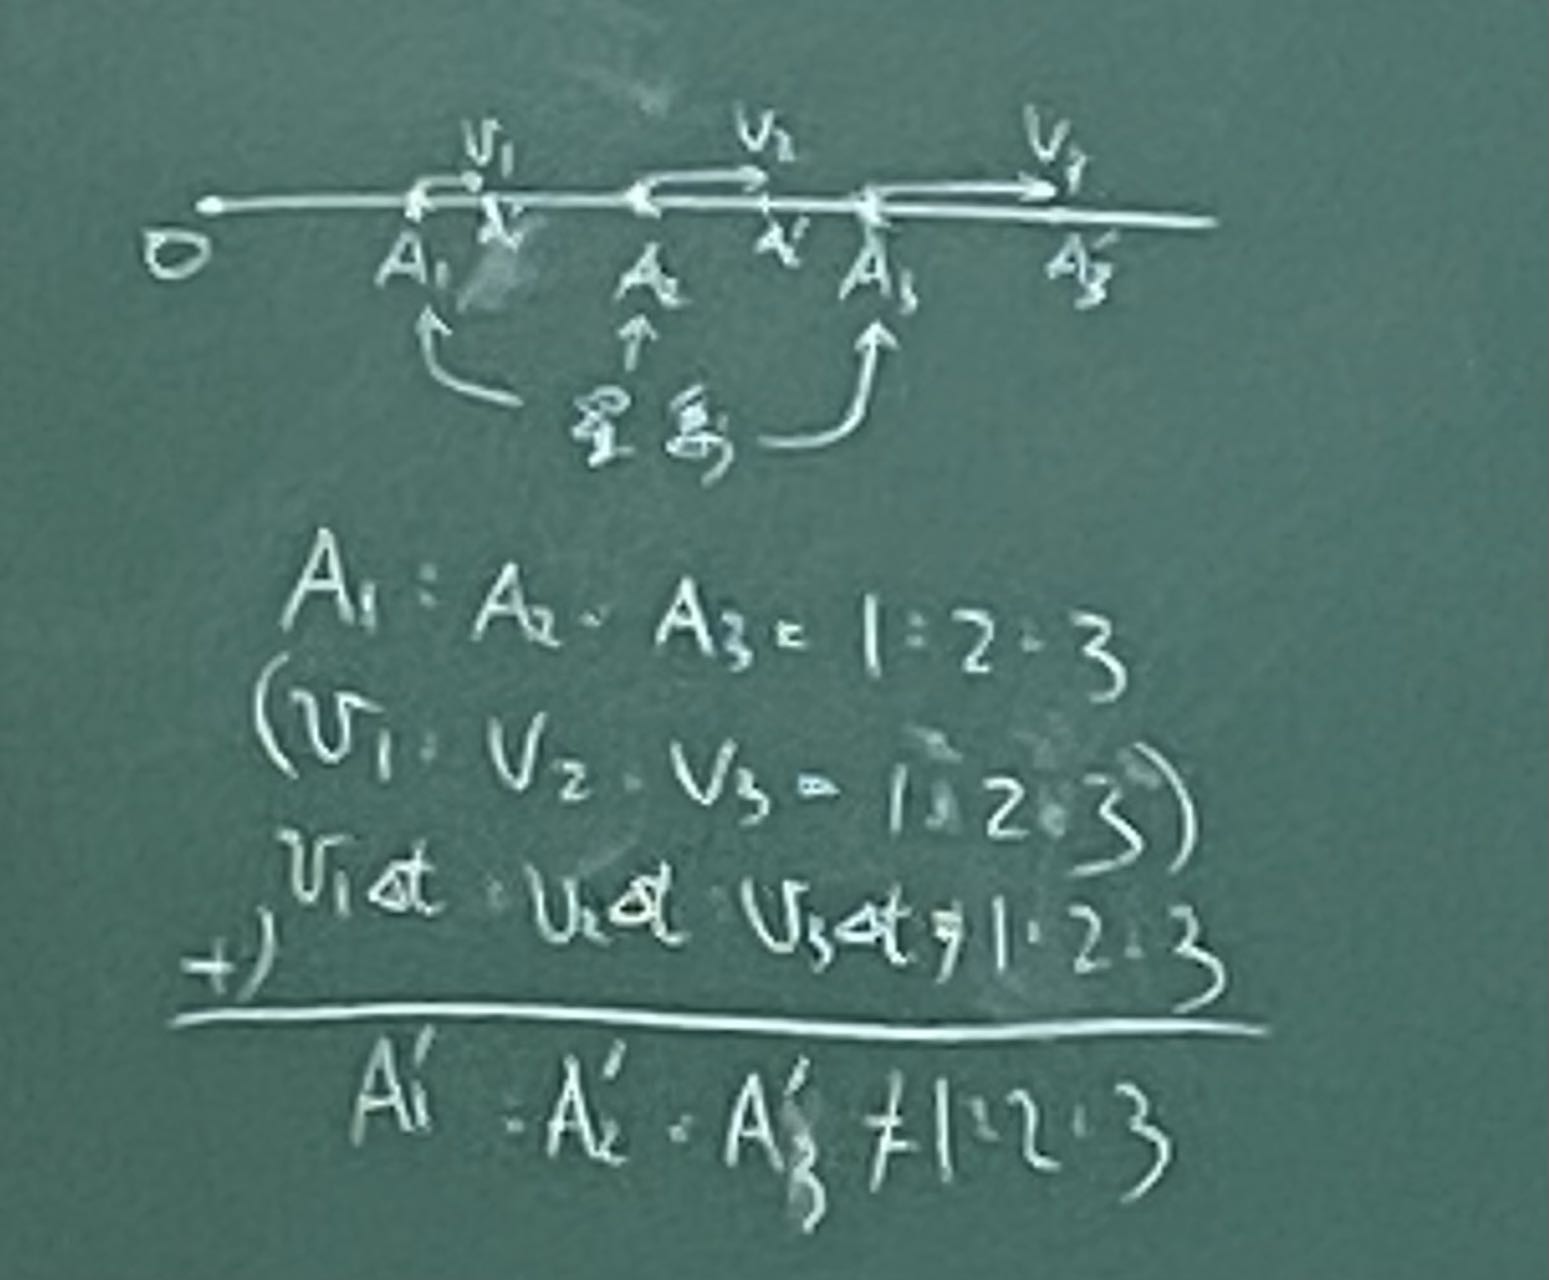 V₁ V₂ V₃
O A₁ A₂ A₂' A₃ A₃'
A₁ : A₂ : A₃ = 1 : 2 : 3
(V₁ : V₂ : V₃ = 1 : 2 : 3)
+) V₁Δt : V₂Δt : V₃Δt ≠ 1 : 2 : 3
A₁' : A₂' : A₃' ≠ 1 : 2 : 3